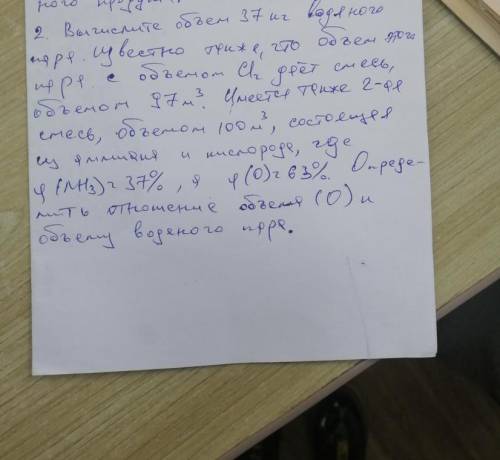 ного продук
2. Вычислите объем 37 кг водяного
пара. Известно также, что объем этого
пара с объемом Cl₂ даёт смесь,
объемом 97 м³. Имеется также 2-ая
смесь, объемом 100 м³, состоящая
из аммиака и кислорода, где
φ(NH₃)=37%, а φ(O)=63%. Опреде-
лить отношение объема (O) к
объему водяного пара.